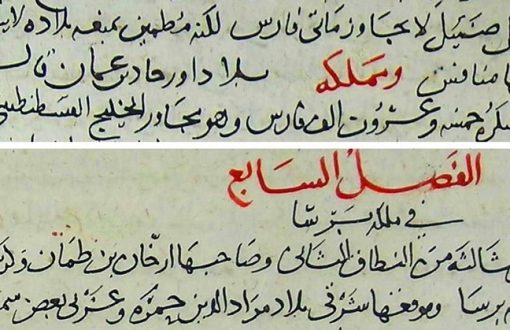 ضئيل لا يجاوز مائتي فارس لكنه مطمئن بمنعه بلاده
ومملكة بلاد اورخان بن عثمان
عسكره خمسه وعشرون الف فارس وهو مجاور الخليج القسطنطيني
الفصل السابع
في مملكة برسا
الثالثه من النطاق الثاني وصاحبها ارخان بن طمان
برسا وموقعها شرقي بلاد مراد الدين حمزه وغربي بعض